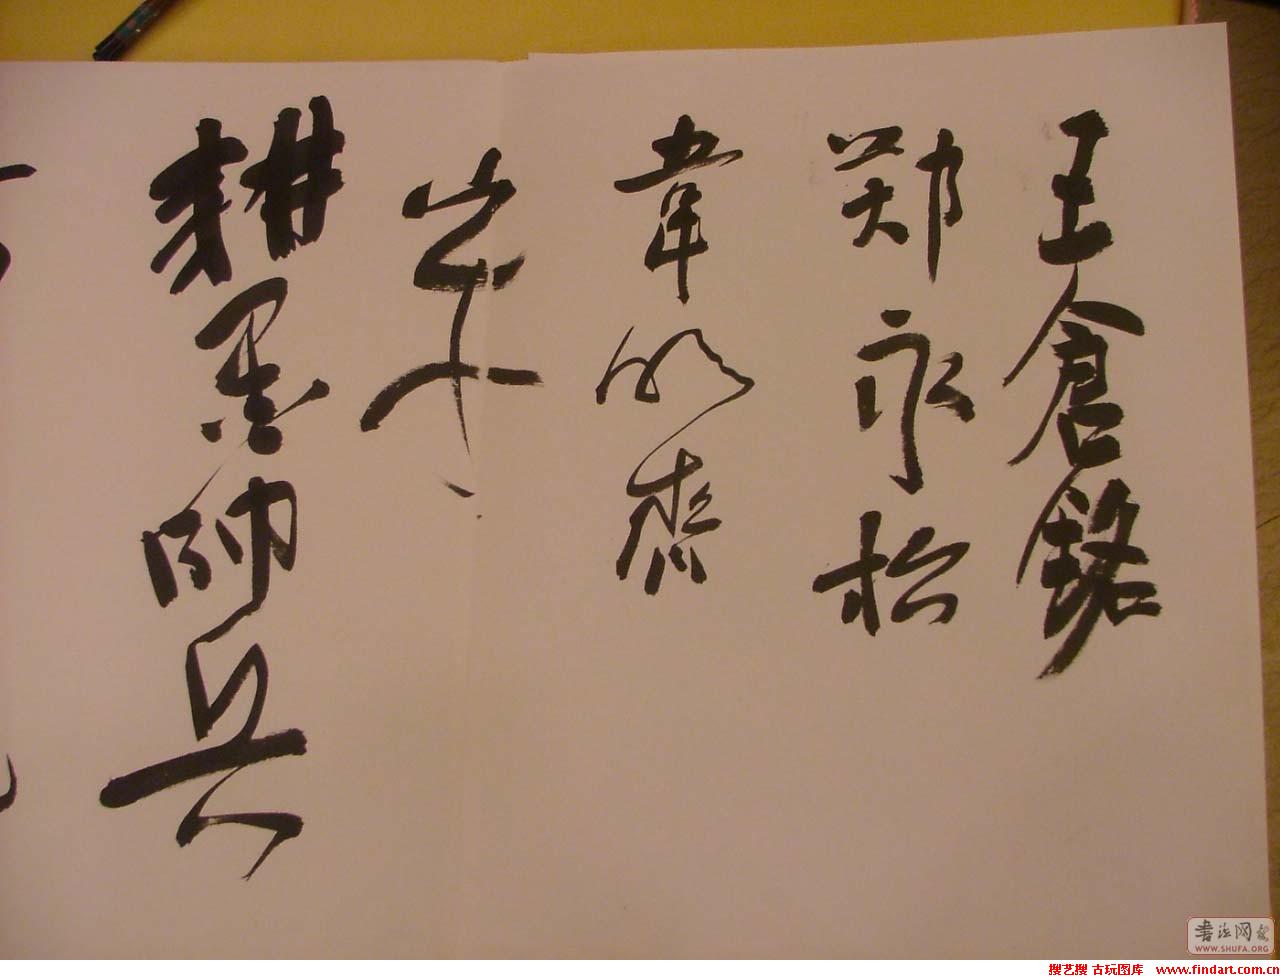 王倉銘
郑永松
韋明
耕墨帥兵
書法网
WWW.SHUFA.ORG
搜艺搜 古玩图库 www.findart.com.cn